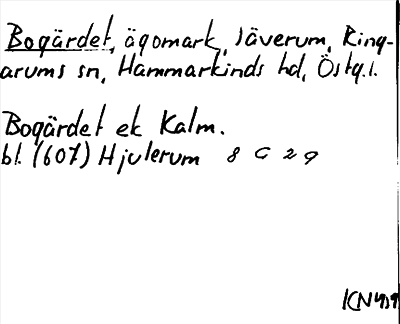 Bogärdet, ägomark, Säverum, Ring-
arums sn, Hammarkinds hd, Östg.l.
Bogärdet ek Kalm.
bl. (607) Hjulerum 8 G 2 g